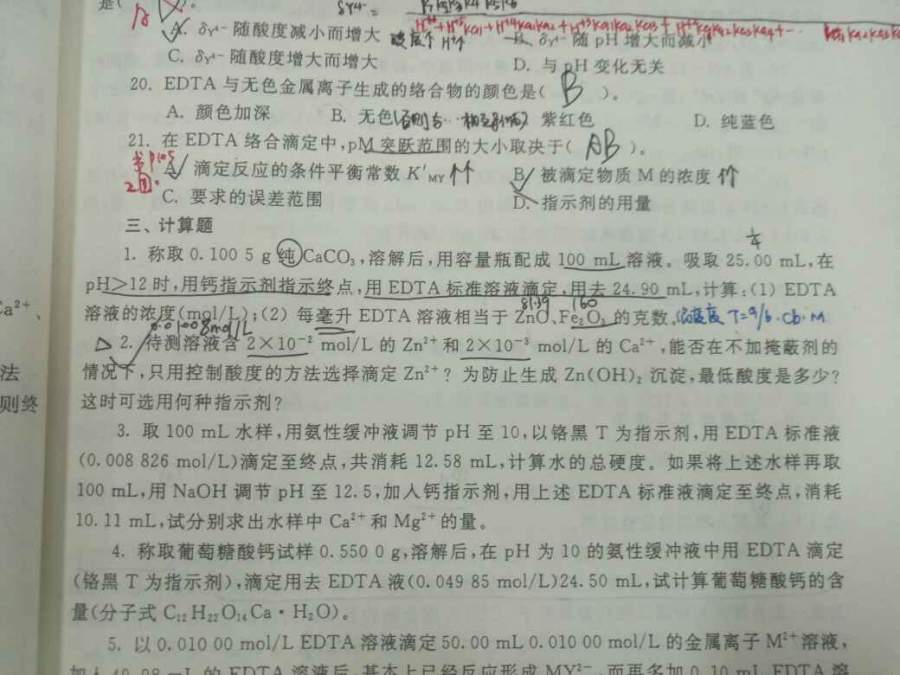 是(
A. δY4- 随酸度减小而增大
δY4- 随 pH 增大而减小
C. δY4- 随酸度增大而增大 D. 与 pH 变化无关
20. EDTA 与无色金属离子生成的络合物的颜色是( B )。
A. 颜色加深 B. 无色 紫红色 D. 纯蓝色
21. 在 EDTA 络合滴定中,pM 突跃范围的大小取决于( AB )。
A. 滴定反应的条件平衡常数 K′MY ↑↑ B. 被滴定物质 M 的浓度
C. 要求的误差范围 D. 指示剂的用量
三、计算题
1. 称取 0.100 5 g 纯 CaCO3,溶解后,用容量瓶配成 100 mL 溶液。吸取 25.00 mL,在
pH>12 时,用钙指示剂指示终点,用 EDTA 标准溶液滴定,用去 24.90 mL,计算:(1) EDTA
81.39 160
溶液的浓度(mol/L);(2) 每毫升 EDTA 溶液相当于 ZnO、Fe2O3 的克数。
Ca2+、
0.01008mol/L
2. 待测溶液含 2×10-2 mol/L 的 Zn2+ 和 2×10-3 mol/L 的 Ca2+,能否在不加掩蔽剂的
法
情况下,只用控制酸度的方法选择滴定 Zn2+? 为防止生成 Zn(OH)2 沉淀,最低酸度是多少?
则终
这时可选用何种指示剂?
3. 取 100 mL 水样,用氨性缓冲液调节 pH 至 10,以铬黑 T 为指示剂,用 EDTA 标准液
(0.008 826 mol/L)滴定至终点,共消耗 12.58 mL,计算水的总硬度。如果将上述水样再取
100 mL,用 NaOH 调节 pH 至 12.5,加入钙指示剂,用上述 EDTA 标准液滴定至终点,消耗
10.11 mL,试分别求出水样中 Ca2+ 和 Mg2+ 的量。
4. 称取葡萄糖酸钙试样 0.550 0 g,溶解后,在 pH 为 10 的氨性缓冲液中用 EDTA 滴定
(铬黑 T 为指示剂),滴定用去 EDTA 液(0.049 85 mol/L)24.50 mL,试计算葡萄糖酸钙的含
量(分子式 C12H22O14Ca·H2O)。
5. 以 0.010 00 mol/L EDTA 溶液滴定 50.00 mL 0.010 00 mol/L 的金属离子 M2+ 溶液,
mL 的 EDTA 溶液后,基本上已经反应形成 MY2-,而再多加 0.10 mL EDTA 溶